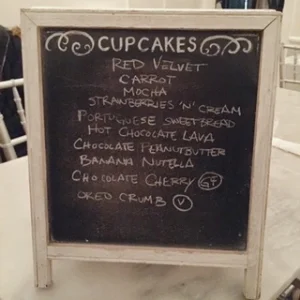 CUPCAKES
RED VELVET
CARROT
MOCHA
STRAWBERRIES 'N' CREAM
PORTUGUESE SWEETBREAD
HOT CHOCOLATE LAVA
CHOCOLATE PEANUTBUTTER
BANANA NUTELLA
CHOCOLATE CHERRY GF
OREO CRUMB V